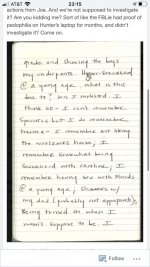 AT&T
23:15
actions from Joe. And we're not supposed to investigate
it? Are you kidding me? Sort of like the FBI,.e had proof of
pedophilia on Hunter's laptop for months, and didn't
investigate it? Come on.
grade and showing the boys
my underpants. Hyper-sexualized
@ a young age. What is this
due to? Was I molested. I
think so - I can't remember
specifics but I do remember
trauma - I remember not liking
the house, I
remember somewhat being
sexualized with, I
remember having sex with friends
@ a young age; showers w/
my dad (probably not appropriate).
Being turned on when I
wasn't suppose to be. I
Follow